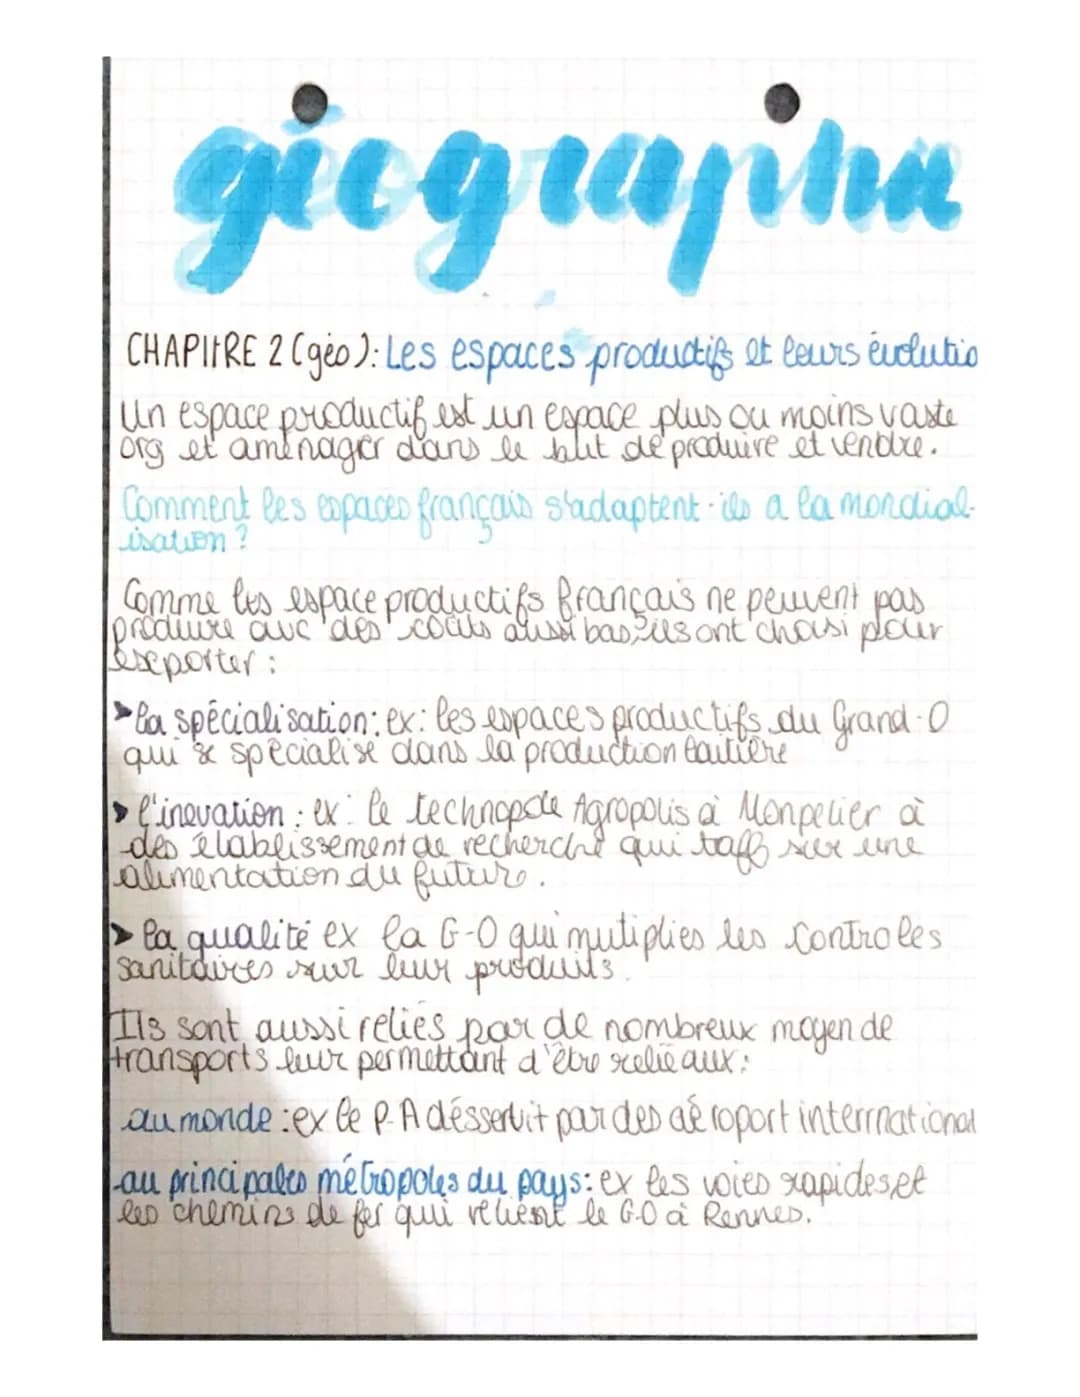 géographie
CHAPITRE 2 (géo): Les espaces productifs et leurs évolutio
Un espace productif est un espace plus ou moins vaste
org et aménager dans le but de produire et vendre.
Comment les espaces français s'adaptent-ils a la mondial-
isation ?
Comme les espace productifs français ne peuvent pas
produire avc des coûts aussi bas, ils ont choisi pour
exporter :
➤ la spécialisation: ex: les espaces productifs du Grand-O
qui se spécialise dans la production laitière
➤ l'inovation : ex: le technopole Agropolis à Monpelier à
des établissement de recherche qui taff sur une
alimentation du futur.
➤ la qualité ex la G-O qui mutiplies les controles
sanitaires sur leur produits.
Ils sont aussi reliés par de nombreux moyen de
transports leur permettant d'être relié aux:
au monde : ex le P-A désservit par des aéroport interrnational
-au principales métropoles du pays: ex les voies rapides et
les chemins de fer qui relient le G.O à Rennes.